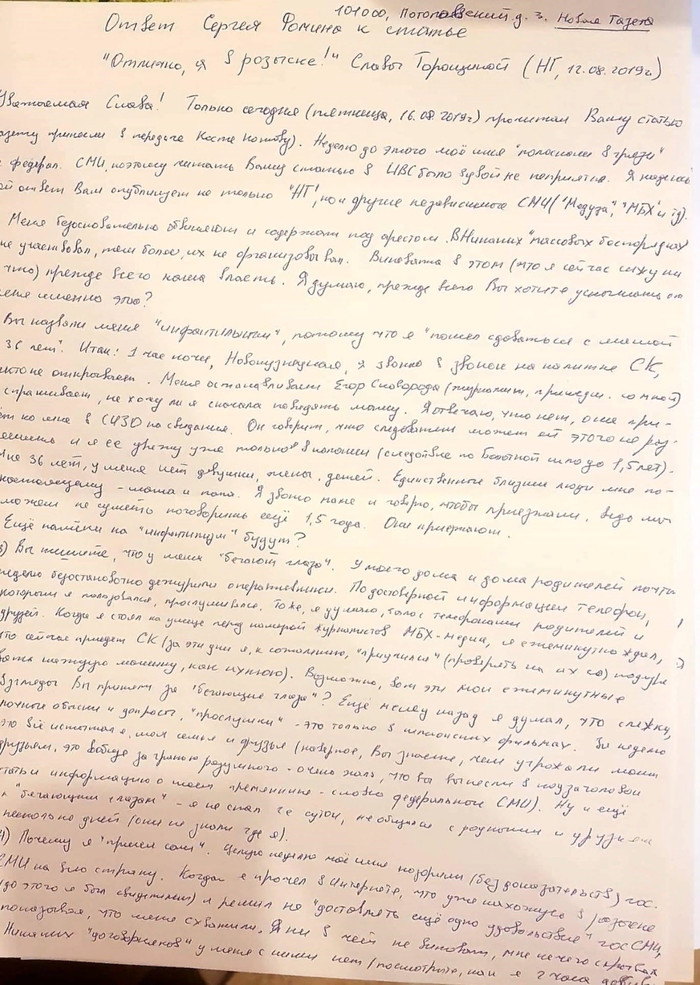 101000, Потаповский д. 3. Новая Газета
Ответ Сергея Фомина к статье
"Отлично, я в розыске!" Славы Торощиной (НГ, 12.08.2019г)
Уважаемая Слава! Только сегодня (пятница, 16.08.2019г) прочитал Вашу статью
газету принесли в передаче Косте Котову). Неделю до этого моё имя "полоскали в грязи"
федерал. СМИ, поэтому читать Вашу статью в ИВС было вдвой не приятно. Я надеюсь
ой ответ Вам опубликует не только "НГ", но и другие независимые СМИ ("Медуза", "МБХ" и др).
Меня безосновательно обвиняют и содержат под арестом. В никаких "массовых беспорядках"
не участвовал, тем более, их не организовывал. Виновата в этом (что я сейчас сижу ни
что) прежде всего наша власть. Я думаю, прежде всего Вы хотите услышать от
меня именно это?
Вы назвали меня "инфантильным", потому что я "пошел сдаваться с мамой
36 лет". Итак: 1 час ночи, Новокузнецкая, я звоню в звонок на калитке СК,
никто не открывает. Меня останавливает Егор Сковорода (журналист, приехал со мной)
спрашивает, не хочу ли я сначала повидать маму. Я отвечаю, что нет, она при-
дет ко мне в СИЗО на свидание. Он говорит, что следователь может ей этого не раз-
решить и я её увижу уже только в колонии (следствие по Болотной шло до 1,5 лет).
Мне 36 лет, у меня нет девушки, жены, детей. Единственные близкие люди мне по-
настоящему - мама и папа. Я звоню папе и говорю, чтобы приезжали, ведь мы
можем не суметь поговорить ещё 1,5 года. Они приезжают.
Ещё намёки на "инфантилизм" будут?
3) Вы пишите, что у меня "бегают глаза". У моего дома и дома родителей почти
неделю безостановочно дежурили оперативники. По достоверной информации телефон,
которым я пользовался, прослушивался. Тоже, я думаю, было с телефонами родителей и
друзей. Когда я стоял на улице перед камерой журналистов МБХ-медиа, я ежеминутно ждал,
что сейчас приедет СК (за эти дни я, к сожалению, "приучился" (проверять на их
каждую машину, как ихнюю). Возможно, вот эти мои ежеминутные
взгляды Вы приняли за "бегающие глаза"? Ещё месяц назад я думал, что слежка,
ночные обыски и допросы, "прослушки" - это только в шпионских фильмах. За неделю
это всё испытал я, моя семья и друзья (наверное, Вы знаете, чем угрожали моим
друзьям, это вообще за гранью разумного - очень жаль, что вы вынесли в подзаголовок
статьи информацию о моём племяннике - словно федеральное СМИ). Ну и ещё
к "бегающим глазам" - я не спал 2е суток, не общался с родными и друзьями
несколько дней (они не знали где я).
4) Почему я "пришёл сам". Целую неделю моё имя позорили (без доказательств) гос.
СМИ на всю страну. Когда я прочёл в Интернете, что уже нахожусь в розыске
(до этого я был свидетелем) я решил не "доставлять ещё одно удовольствие" гос СМИ,
показывая, что меня схватили. Я ни в чём не виноват, мне нечего скрывать
Никаких "договорняков" у меня с ними нет (посмотрите, как я 2 часа